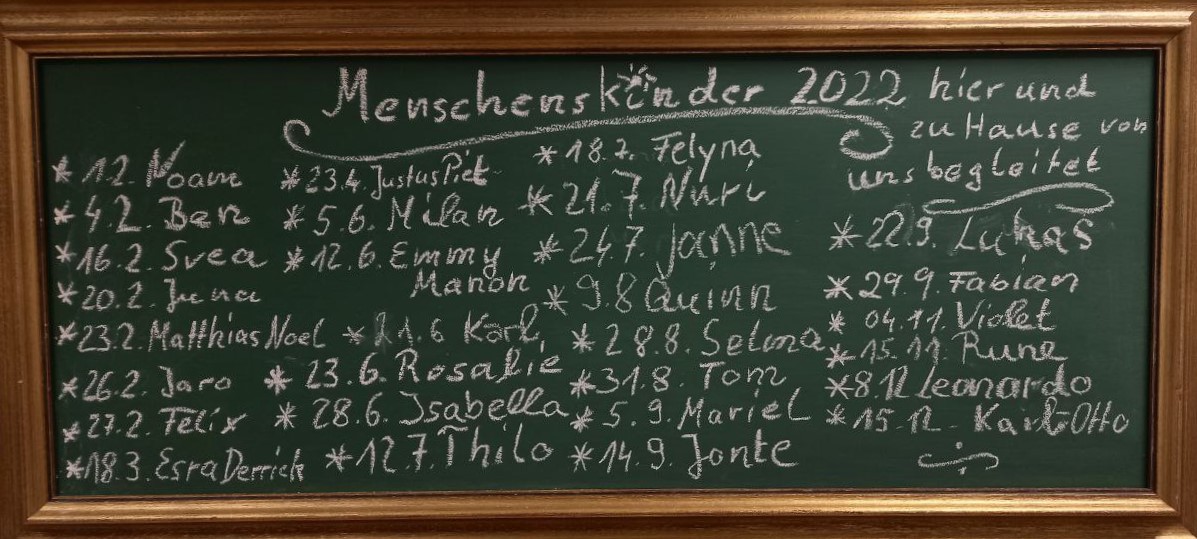 Menschenskinder 2022 hier und
zu Hause von
uns begleitet
* 1.2. Noam
* 4.2. Ben
* 16.2. Svea
* 20.2. Juna
* 23.2. Matthias Noel
* 26.2. Jaro
* 27.2. Felix
* 18.3. Esra Derrick
* 23.4. Justus Piet
* 5.6. Milan
* 12.6. Emmy
Manon
* 21.6 Karl
* 23.6. Rosalie
* 28.6. Isabella
* 12.7. Thilo
* 18.7. Felyna
* 21.7. Nuri
* 24.7. Janne
* 9.8 Quinn
* 28.8. Selma
* 31.8. Tom
* 5.9. Mariel
* 14.9. Jonte
* 22.9. Lukas
* 29.9. Fabian
* 04.11. Violet
* 15.11. Rune
* 8.12 Leonardo
* 15.12. Karl Otto